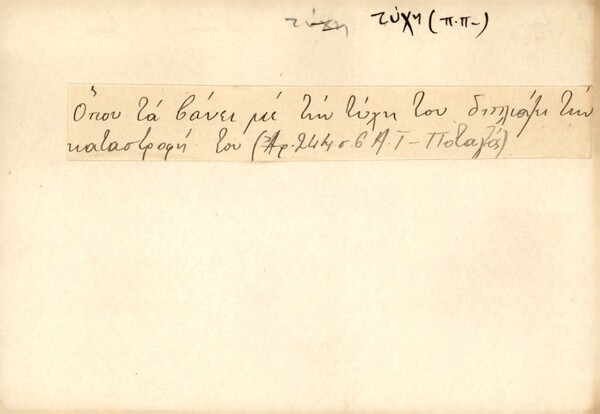 τύχη τύχη (π.π-)
Ὅπου τά βάνει μέ τήν τύχη του διπλιάζει τήν
καταστροφή του (Ἀρ. 244 σ. 6 Α. Γ - Ποταγός)